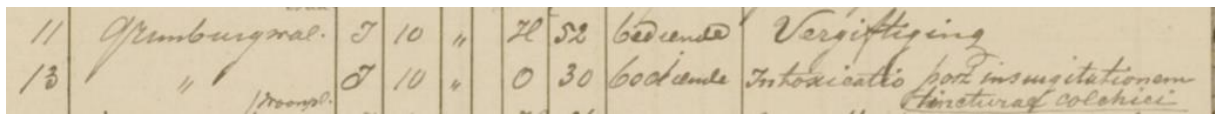 11 Grimburgwal. J 10 " H 52 bediende Vergiftiging
13 " J 10 " O 30 bediende Intoxicatio post insurgitationem
(woonpl. tincturae colchici